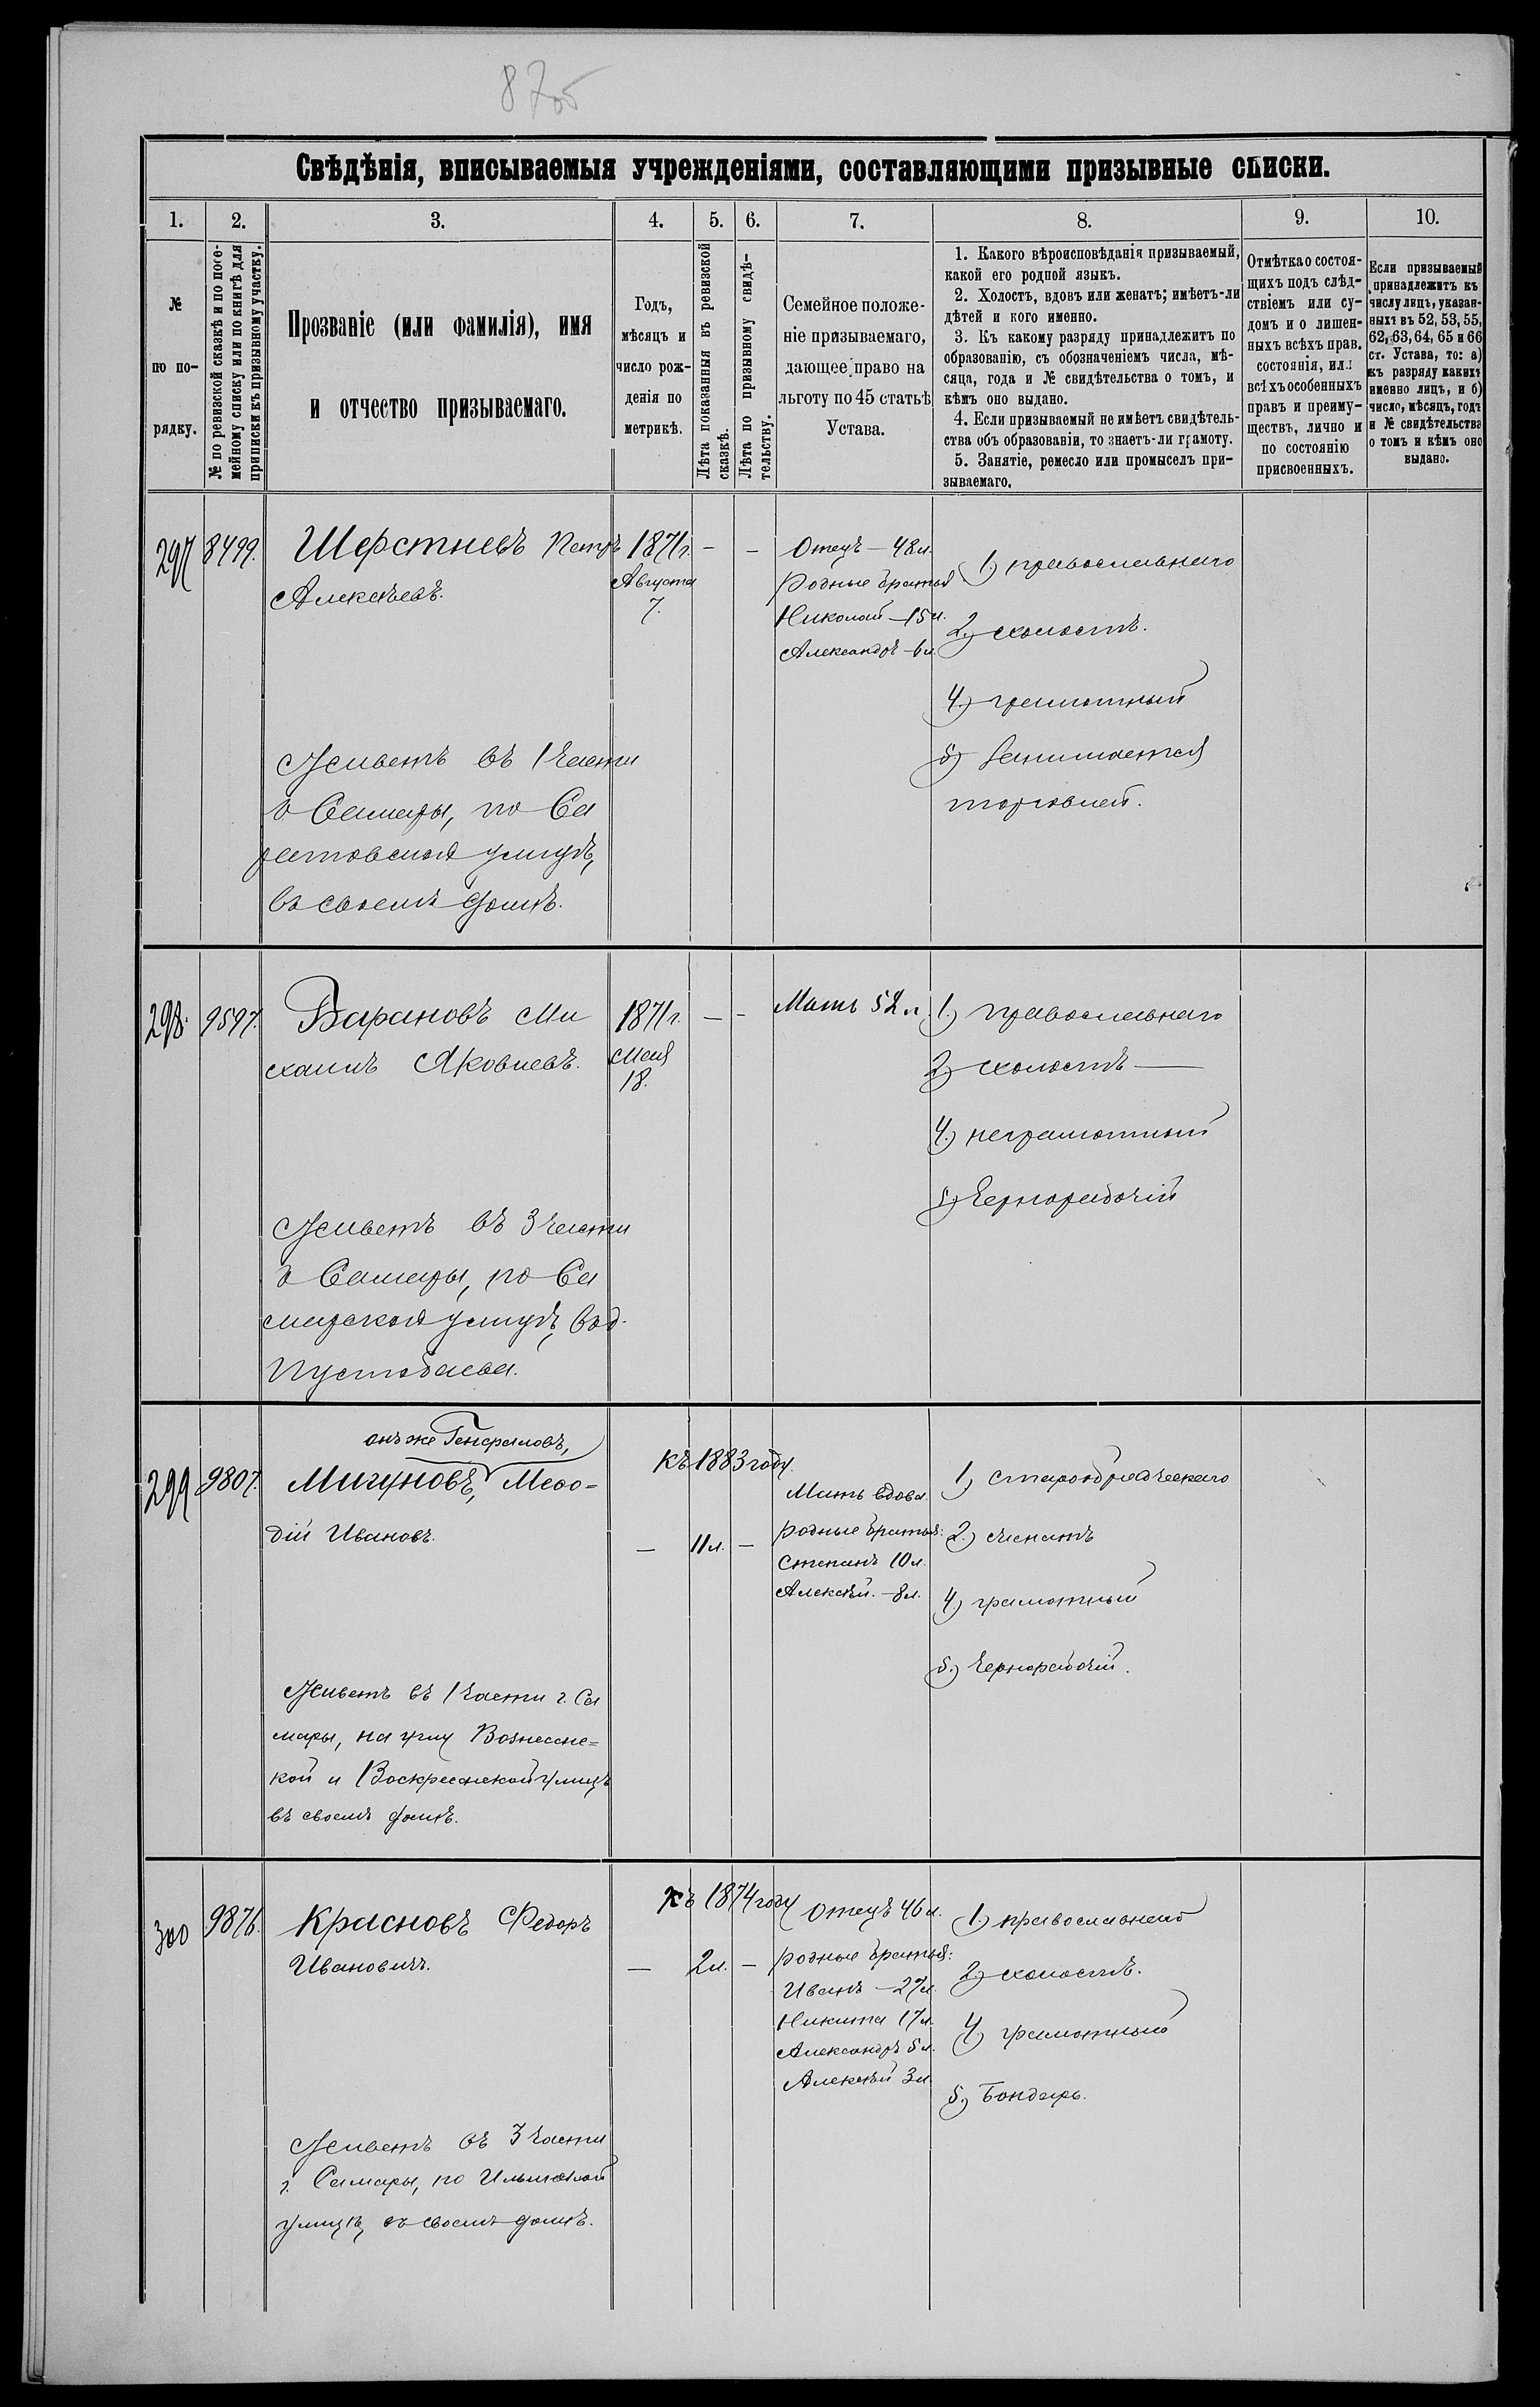 87об
Свѣдѣнія, вписываемыя учрежденіями, составляющими призывные списки.
1. 2. 3. 4. 5. 6. 7. 8. 9. 10.
№
по по-
рядку.
№ по ревизской сказкѣ и по посе-
мейному списку или по книгѣ для
приписки къ призывному участку.
Прозваніе (или фамилія), имя
и отчество призываемаго.
Годъ,
мѣсяцъ и
число рож-
денія по
метрикѣ.
Лѣта показанныя въ ревизской
сказкѣ.
Лѣта по призывному свидѣ-
тельству.
Семейное положе-
ніе призываемаго,
дающее право на
льготу по 45 статьѣ
Устава.
1. Какого вѣроисповѣданія призываемый,
какой его родной языкъ.
2. Холостъ, вдовъ или женатъ; имѣетъ-ли
дѣтей и кого именно.
3. Къ какому разряду принадлежитъ по
образованію, съ обозначеніемъ числа, мѣ-
сяца, года и № свидѣтельства о томъ, и
кѣмъ оно выдано.
4. Если призываемый не имѣетъ свидѣтель-
ства объ образованіи, то знаетъ-ли грамоту.
5. Занятіе, ремесло или промыселъ при-
зываемаго.
Отмѣтка о состоя-
щихъ подъ слѣд-
ствіемъ или су-
домъ и о лишен-
ныхъ всѣхъ прав.
состоянія, или
всѣхъ особенныхъ
правъ и преиму-
ществъ, лично и
по состоянію
присвоенныхъ.
Если призываемый
принадлежитъ къ
числу лицъ, указан-
ныхъ въ 52, 53, 55,
62, 63, 64, 65 и 66
ст. Устава, то: а)
къ разряду какихъ
именно лицъ, и б)
число, мѣсяцъ, годъ
и № свидѣтельства
о томъ и кѣмъ оно
выдано.
297 8499. Шерстневъ Петръ
Алексѣевъ.
Живетъ въ 1 части
г Самары, по Са
ратовской улицѣ,
въ своемъ домѣ.
1871 г.
Августа
7.
— —
Отецъ — 48 л.
Родные братья
Николай — 15 л.
Александръ — 6 л.
1.) православнаго
2.) холостъ.
4.) грамотный
5) Занимается
торговлей.
298. 9597. Барановъ Ми
хаилъ Яковлевъ.
Живетъ въ 3 части
г Самары, по Са
марской улицѣ, въ д.
Пустобаева.
1871 г.
Мая
18.
— —
Мать 52 л.
1.) православнаго
2) холостъ —
4.) неграмотный
5.) Чернорабочій
299 9807. онъ же Генераловъ,
Мигуновъ, Мефо-
дій Ивановъ.
Живетъ въ 1 части г. Са
мары, на углу Вознесенс-
кой и Воскресенской улицъ
въ своемъ домѣ.
Къ 1883 году.
— 11 л. —
Мать вдова.
родные братья:
Степанъ 10 л.
Алексѣй. — 8 л.
1) старообрядческаго
2.) женатъ
4.) грамотный
5.) Чернорабочій.
300 9876. Красновъ Федоръ
Ивановичъ.
Живетъ въ 3 части
г. Самары, по Ильинской
улицѣ, въ своемъ домѣ.
Къ 1874 году
— 2 л. —
Отецъ 46 л.
родные братья:
Иванъ — 27 л.
Никита 17 л.
Александръ 5 л.
Алексѣй 3 л.
1.) православнаго
2.) холостъ.
4) грамотный
5.) Бондарь.